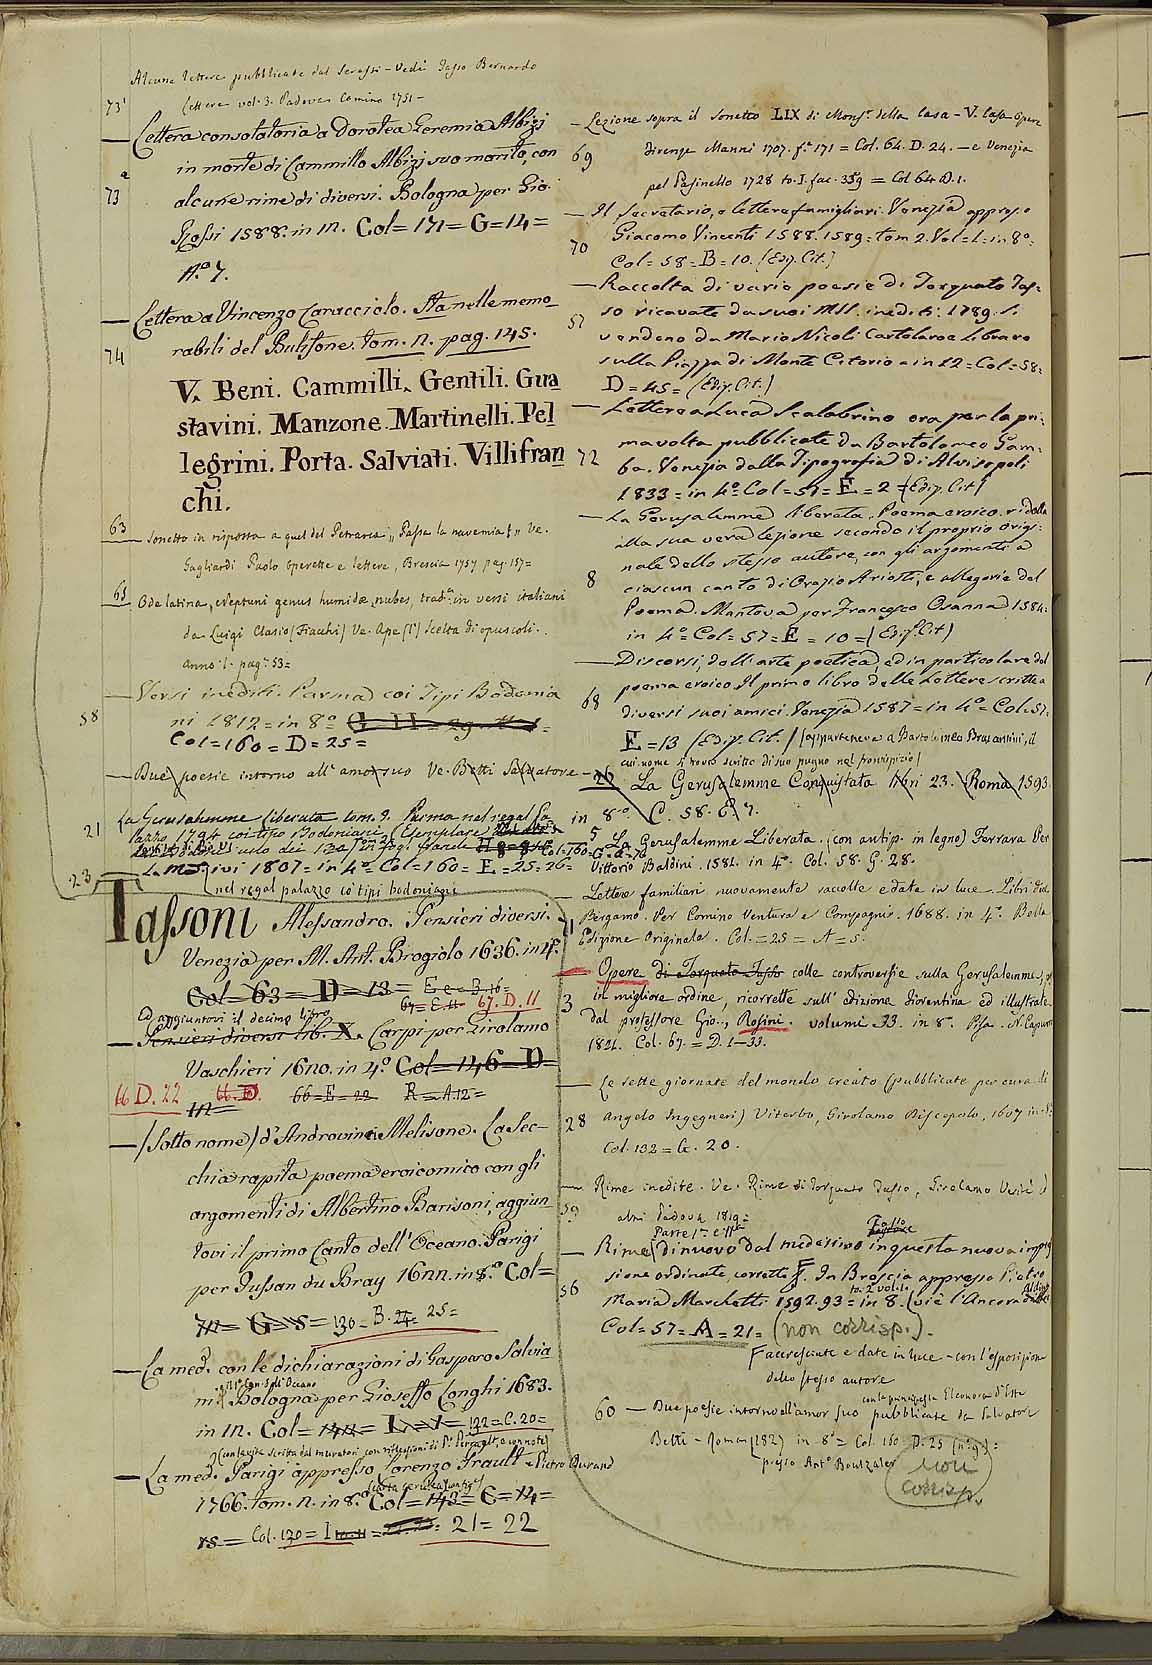 Alcune lettere pubblicate dal Serassi - Vedi Tasso Bernardo
73¹ Lettere vol. 3. Padova Comino 1751 -
— Lettera consolatoria a Dorotea Geremia Albizj
in morte di Cammillo Albizj suo marito, con
73² alcune rime di diversi. Bologna per Gio.
Rossi 1588. in 12. Col= 171= G= 14=
N.º 7.
— Lettera a Vincenzo Caracciolo. Sta nelle memo-
74 rabili del Bulifone. tom. 2. pag. 145.
V. Beni. Cammilli. Gentili. Gua
stavini. Manzone. Martinelli. Pel
legrini. Porta. Salviati. Villifran
chi.
63 Sonetto in risposta a quel del Petrarca „ Passa la nave mia &„ Ve.
Gagliardi Paolo Operette e lettere, Brescia 1757 pag. 157=
65 Ode latina, Neptuni genus humidæ nubes, trad.ª in versi italiani
da Luigi Clasio (Fiacchi) Ve. Ape (l') Scelta di opuscoli.
Anno 1. pag. 53=
— Versi inediti. Parma coi Tipi Bodonia
58 ni 1812= in 8º
Col=160= D=25=
— Due poesie intorno all' amor suo Ve. Betti Salvatore
21 La Gerusalemme liberata tom. 2. Parma nel regal Pa
lazzo 1794 coi tipi Bodoniani (Esemplare
uno dei 130) in fog. grande Col=160= G. 2. 76
23 — La med. ivi 1807= in 4º Col=160= E=25=26=
nel regal palazzo co' tipi bodoniani
Tassoni Alessandro. Pensieri diversi.
Venezia per M. Ant. Brogiolo 1636. in 4º.
Col= 63= D= 13= E e= B. 16=
67= E. 11 67. D. 11
Ed aggiuntovi il decimo libro
— Pensieri diversi lib. X. Carpi per Girolamo
Vaschieri 1620. in 4º Col= 146= D=
66 D. 22 66. D. 66= E= 22 R= A. 12=
12=
— (Sotto nome) d'Androvinci Melisone. La Sec-
chia rapita poema eroicomico con gli
argomenti di Albertino Barisoni, aggiun
tovi il primo Canto dell' Oceano. Parigi
per Tussan du Bray 1622. in 8º Col=
72= G= 8= 130= B. 24= 25=
— La med. con le dichiarazioni di Gasparo Salvia
e il 1º Can. dell' Oceano
ni. Bologna per Gioseffo Longhi 1683.
in 12. Col= 142= L= 1= 132= C. 20=
— La med. Parigi appresso Lorenzo Prault e Pietro Durand
1766. tom. 2. in 8º Col= 143= C= 14=
15= Col. 130= I 21= 22
— Lezione sopra il Sonetto LIX di Mons.r della Casa - V. Casa Opere
69 Firenze Manni 1707. f.º 171= Col. 64. D. 24. — e Venezia
pel Pasinello 1728 to. I. fac. 359 = Col 64 D. 1.
— Il Secretario, e lettere famigliari. Venezia appresso
70 Giacomo Vincenti 1588. 1589= tom 2. Vol=1= in 8º=
Col= 58= B= 10. (Ediz. Cit.)
— Raccolta di varie poesie di Torquato Tas-
so ricavate da suoi MSS. inediti. 1789. Si
57 vendono da Mario Nicoli Cartolaro e Libraro
sulla Piazza di Monte Citorio= in 12= Col= 58=
D= 45= (Ediz. Cit.)
— Lettere a Luca Scalabrino ora per la pri-
ma volta pubblicate da Bartolomeo Gam-
72 ba. Venezia dalla Tipografia di Alvisopoli
1833= in 4º= Col= 57= E= 2= (Ediz. Cit)
— La Gerusalemme liberata. Poema eroico. ridotta
alla sua vera lezione secondo il proprio origi-
nale dello stesso autore, con gli argomenti a
8 ciascun canto di Orazio Ariosti, e allegorie del
Poema. Mantova per Francesco Osanna 1584=
in 4º= Col= 57= E= 10= (Ediz. Cit)
— Discorsi, dell' arte poetica, ed in particolare del
poema eroico. Il primo libro delle Lettere scritte a
68 diversi suoi amici. Venezia 1587= in 4º= Col. 57=
E= 13 (Ediz. Cit.) (apparteneva a Bartolomeo Bruscantini, il
cui nome è scritto di suo pugno nel frontispizio)
— 26 La Gerusalemme Conquistata libri 23. Roma 1593
in 8º C. 58. E. 7.
5 La Gerusalemme Liberata. (con antip. in legno) Ferrara Per
Vittorio Baldini. 1581. in 4º. Col. 58. G. 28.
— Lettere familiari nuovamente raccolte e date in luce - Libri due
71 Bergamo. Per Comino Ventura e Compagni. 1588. in 4º. Bella
Edizione Originale. Col.= 25= A= 5.
— Opere di Torquato Tasso colle controversie sulla Gerusalemme,
3 in migliore ordine, ricorrette sull' edizione fiorentina ed illustrate
dal professore Gio., Rosini. volumi 33. in 8º. Pisa. N. Capurro
1821. Col. 67.= D. 1-33.
— Le sette giornate del mondo creato (pubblicate per cura di
28 Angelo Ingegneri) Viterbo, Girolamo Discepolo, 1607 in 8º
Col. 132= G. 20.
— Rime inedite. Ve. Rime di Torquato Tasso, Girolamo Vasti e
59 altri Padova 1819=
Parte 1ª e IIª Tasso
— Rime (di nuovo dal medesimo in questa nuova impres
sione ordinate, corrette F. In Brescia appresso Pietro
56 Maria Marchetti 1592. 93= to. 2 vol. 1. in 8. (v'è l'Ancora Aldina
Col= 57= A= 21= (non corrisp.).
F accresciute e date in luce - con l'esposizione
dello stesso autore
con la principessa Eleonora d'Este
60 — Due poesie intorno all' amor suo pubblicate da Salvatore
Betti - Roma (1827 in 8º= Col. 160. D. 25 (nº 9)=
presso Ant.º Boulzaler non
corrisp.